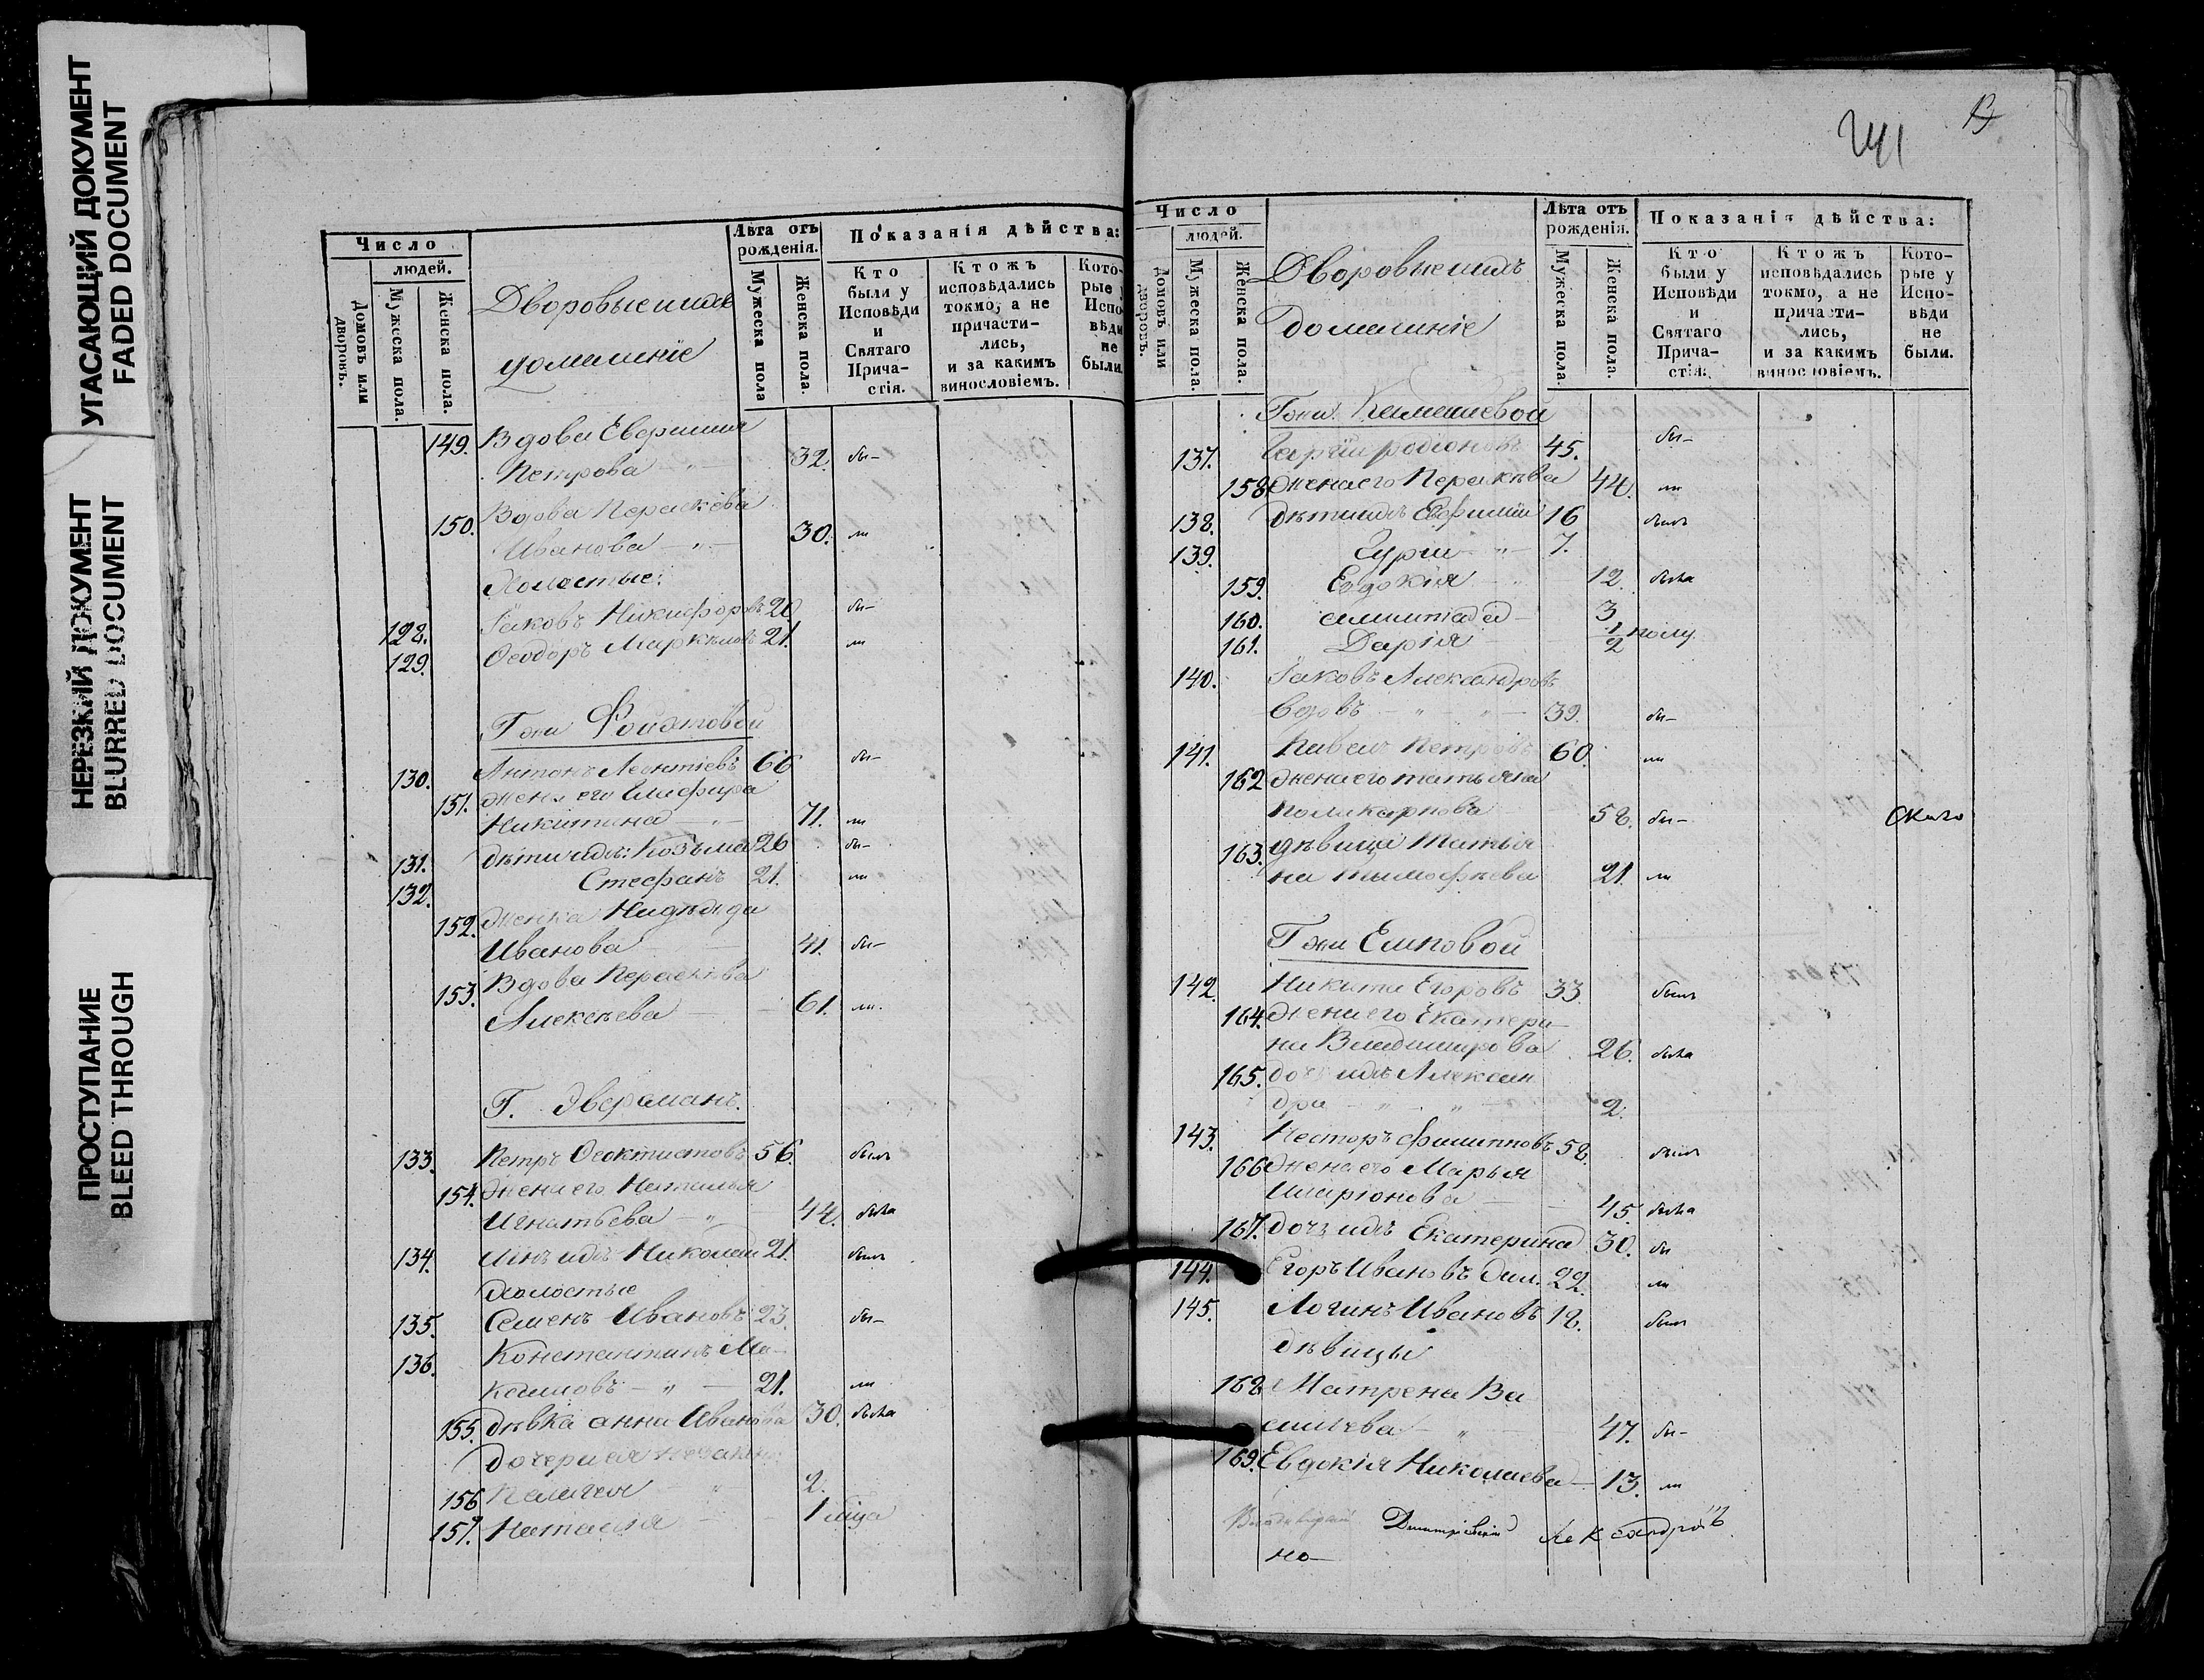 УГАСАЮЩИЙ ДОКУМЕНТ
FADED DOCUMENT
НЕРЕЗКИЙ ДОКУМЕНТ
BLURRED DOCUMENT
ПРОСТУПАНИЕ
BLEED THROUGH
Число
людей.
Домовъ или дворовъ.
Мужеска пола.
Женска пола.
Дворовые
Лѣта отъ рожденія.
Мужеска пола
Женска пола.
Показанія дѣйства:
Кто были у Исповѣди и Святаго Прича-стія.
Ктожъ исповѣдались токмо, а не причасти-лись, и за какимъ винословіемъ.
Кото-рые у Испо-вѣди не были.
149. Вдова
Петрова 32. бы-
150. Вдова Параскева
Иванова 30. ли
Холостые:
128. Іаковъ Никифоровъ 20 бы-
129. Ѳеодоръ Маркѣловъ 21. ли
Гжи
130. Антонъ Леонтіевъ 66 бы-
151. жена его Глафира
Никитина 71. ли
131. дѣти ихъ: Козьма 26 бы-
132. Стефанъ 21. ли
152. женка Надѣжда
Иванова 41. бы-
153. Вдова Параскева
Алексѣева 61. ли.
Г. Эверсманъ.
133. Петръ Ѳеоктистовъ 56. былъ
154. жена его Наталья
Игнатьева 44. была
134. сынъ ихъ Николай 21. былъ
Холостые
135. Семенъ Ивановъ 23. бы-
136. Константинъ Ма-
каловъ 21. ли
155. дѣвка анна Иванова 30. была
дочери ея незакон:
156 Пелагея 2.
157. Наталія 1 мѣца
241
Число
людей.
Домовъ или дворовъ.
Мужеска пола.
Женска пола.
Дворовые ихъ
домашніе
Лѣта отъ рожденія.
Мужеска пола.
Женска пола.
Показанія дѣйства:
Кто были у Исповѣди и Святаго Прича-стія.
Ктожъ исповѣдались токмо, а не причасти-лись, и за какимъ винословіемъ.
Кото-рые у Испо-вѣди не были.
Гжи
137. родіоновъ 45. бы-
158. жена его Параскева 44. ли
138. дѣти ихъ 16 былъ
139. Гурій 7.
159. Евдокія 12. была
160. 3
161. Дарія 1/2 полу.
140. Іаковъ Александровъ
вдовъ 39. бы-
141. Павелъ Петровъ 60. ли
162 жена его татьяна
поликарпова 58. бы-
163. дѣвица Татья
на тимофѣева 21. ли
Гжи Есиповой
142. Никита Егоровъ 33. былъ
164. жена его Екатери-
на Владимирова 26. была
165. дочь ихъ Алексан
дра 2.
143. Несторъ филипповъ 58. былъ
166 жена его Марья
Иларіонова 45. была
167. дочь ихъ Екатерина 30. бы
144. Егоръ Ивановъ 22. ли
145. Логинъ Ивановъ 18. былъ
дѣвицы
168 Матрена Ва
сильева 47. бы-
169. Евдокія Николаева 13. ли
но-